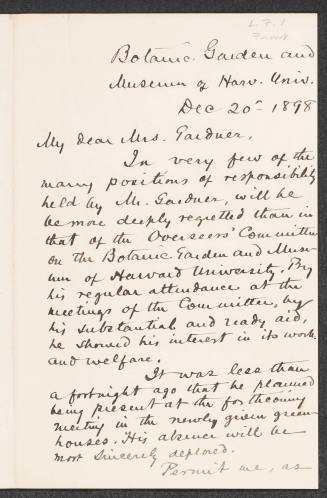 L.F.1
Front
Botanic Garden and
Museum of Harv. Univ.
Dec 20th 1898
My dear Mrs. Gardner,
In very few of the
many positions of responsibility
held by Mr. Gardner, will he
be more deeply regretted than in
that of the Overseers' Committee
on the Botanic Garden and Mus-
eum of Harvard University. By
his regular attendance at the
meetings of the Committee, by
his substantial and ready aid,
he showed his interest in its work
and welfare.
It was less than
a fortnight ago that he planned
being present at the forthcoming
meeting in the newly given green-
houses. His absence will be
most sincerely deplored.
Permit me, as